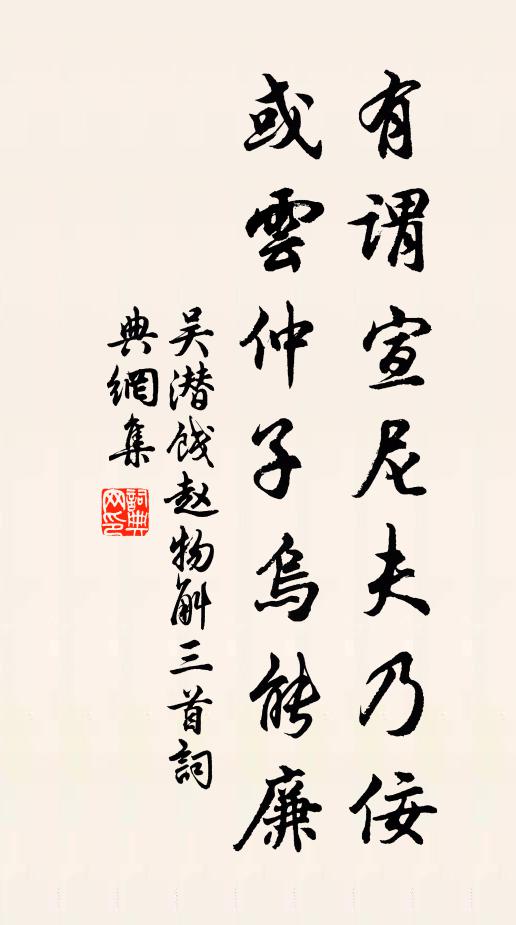 有謂宣尼夫乃佞
或雲仲子烏能廉
吴潜餞赵物斛三首詞
典網集
詞典网印